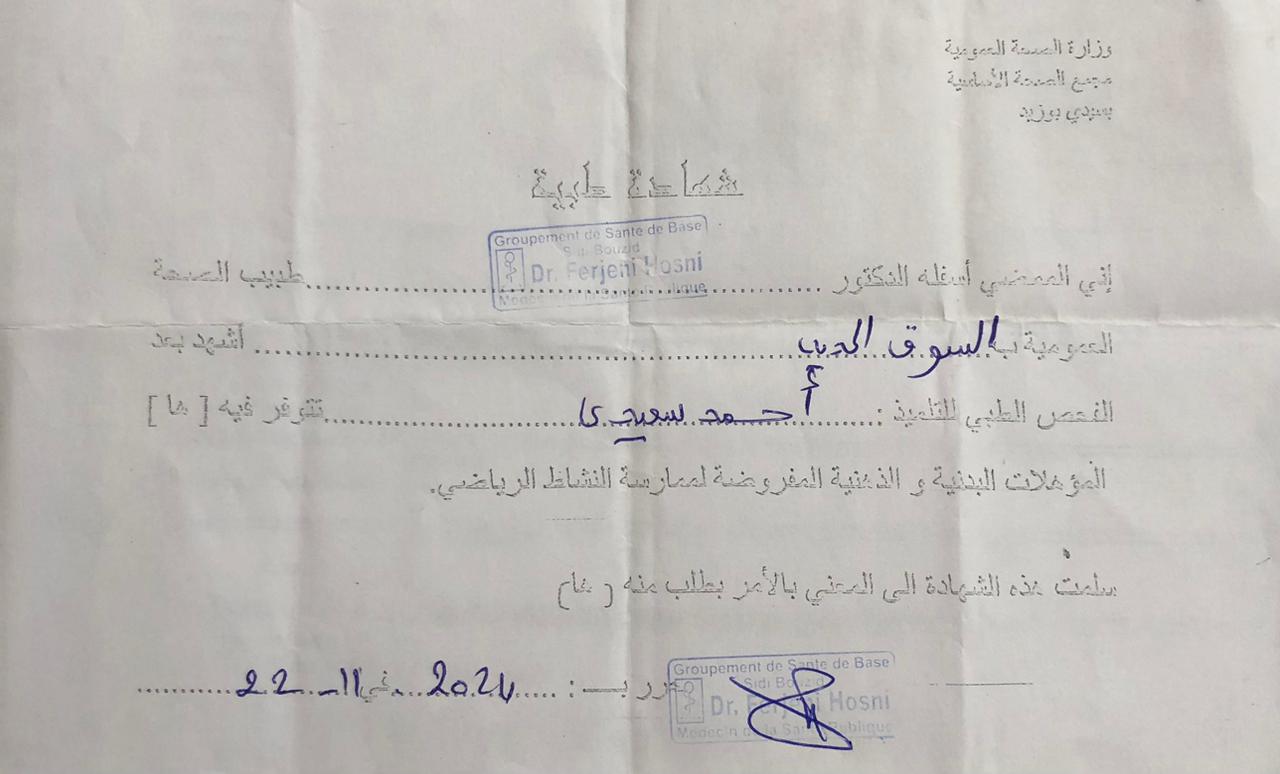 وزارة الصحة العمومية
مجمع الصحة الأساسية
بسيدي بوزيد
شهادة طبية
Groupement de Santé de Base
Sidi Bouzid
Dr. Ferjeni Hosni
Médecin de la Santé Publique
إني الممضي أسفله الدكتور ........................ طبيب الصحة
العمومية بـ السوق الجديد ........................ أشهد بعد
الفحص الطبي للتلميذ : أحمد سعيدي ........................ تتوفر فيه [ ها ]
المؤهلات البدنية و الذهنية المفروضة لممارسة النشاط الرياضي.
سلمت هذه الشهادة الى المعني بالأمر بطلب منه ( ها )
Groupement de Santé de Base
Sidi Bouzid
Dr. Ferjeni Hosni
Médecin de la Santé Publique
حرر بـ : ........ في 22-11-2024